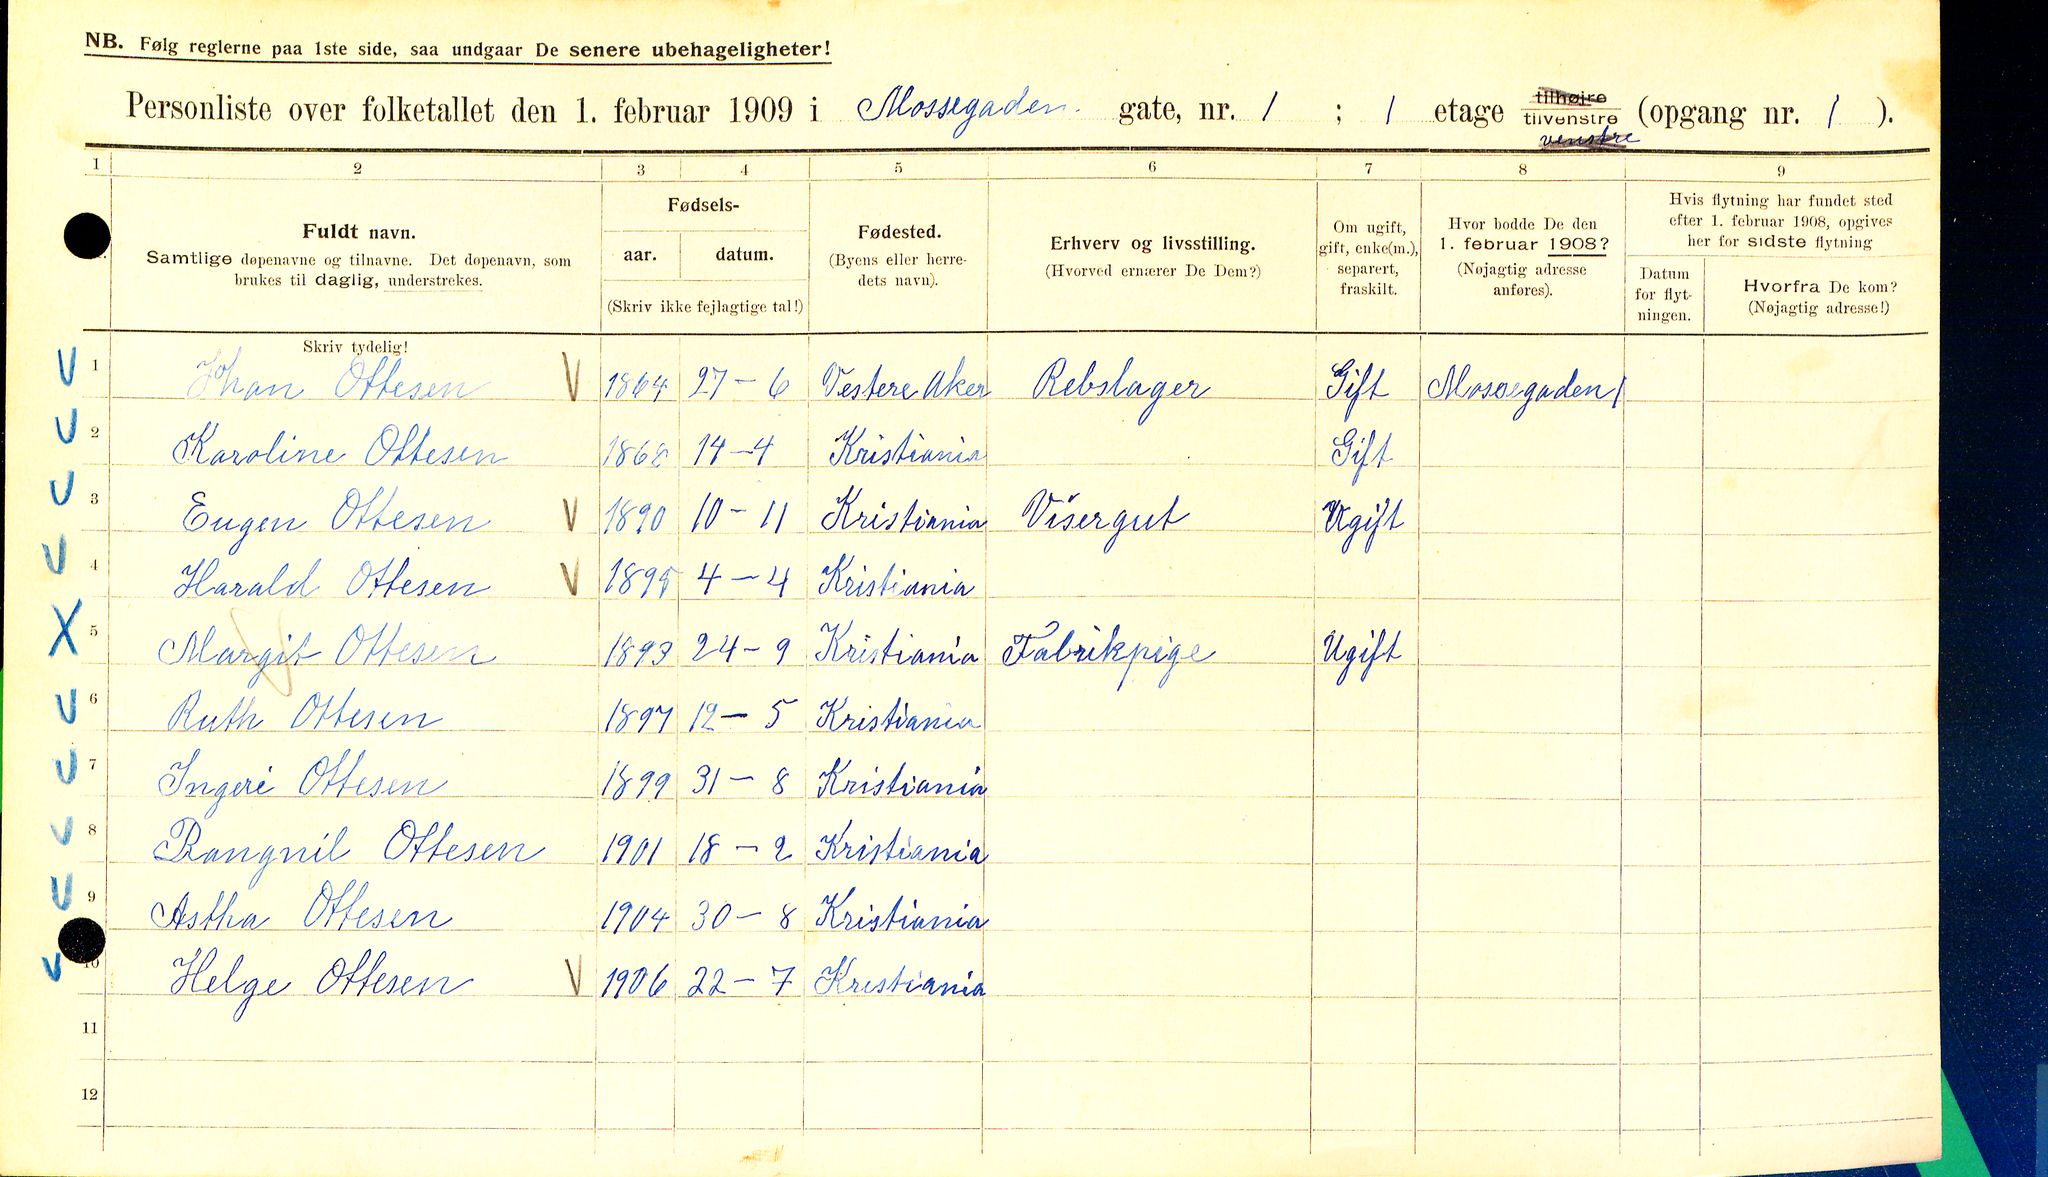 NB. Følg reglerne paa 1ste side, saa undgaar De senere ubehageligheter!
Personliste over folketallet den 1. februar 1909 i Mossegaden gate, nr. 1 ; 1 etage tilhøjre tilvenstre (opgang nr. 1 ).
venstre
1 2 3 4 5 6 7 8 9
Fuldt navn.
Samtlige døpenavne og tilnavne. Det døpenavn, som
brukes til daglig, understrekes.
Fødsels-
aar. datum.
(Skriv ikke fejlagtige tal!)
Fødested.
(Byens eller herre-
dets navn).
Erhverv og livsstilling.
(Hvorved ernærer De Dem?)
Om ugift,
gift, enke(m.),
separert,
fraskilt.
Hvor bodde De den
1. februar 1908?
(Nøjagtig adresse
anføres).
Hvis flytning har fundet sted
efter 1. februar 1908, opgives
her for sidste flytning
Datum
for flyt-
ningen.
Hvorfra De kom?
(Nøjagtig adresse!)
Skriv tydelig!
1 Johan Ottesen V 1864 27-6 Vestere Aker Rebslager Gift Mossegaden 1
2 Karoline Ottesen 14-4 Kristiania Gift
3 Eugen Ottesen V 1890 10-11 Kristiania Visergut Ugift
4 Harald Ottesen V 1895 4-4 Kristiania
5 Margit Ottesen 1893 24-9 Kristiania Fabrikpige Ugift
6 Ruth Ottesen 1897 12-5 Kristiania
7 Ingeri Ottesen 1899 31-8 Kristiania
8 Rangnil Ottesen 1901 18-2 Kristiania
9 Astha Ottesen 1904 30-8 Kristiania
10 Helge Ottesen V 1906 22-7 Kristiania
11
12